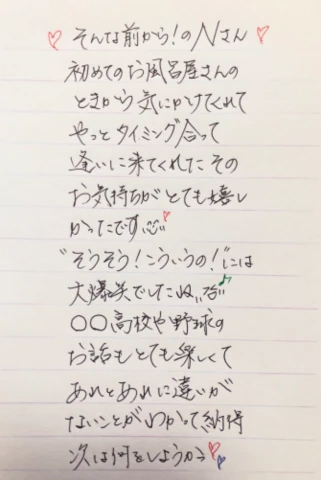 ♡そんな前から！のNさん♡
初めてのお風呂屋さんの
ときから気にかけてくれて
やっとタイミング合って
逢いに来てくれたその
お気持ちがとても嬉し
かったです♡
"そうそう！こういうの！"には
大爆笑でしたね♪
〇〇高校や野球の
お話もとても楽しくて
あれとあれに違いが
ないことがわかって納得
次は何をしようか♡♡